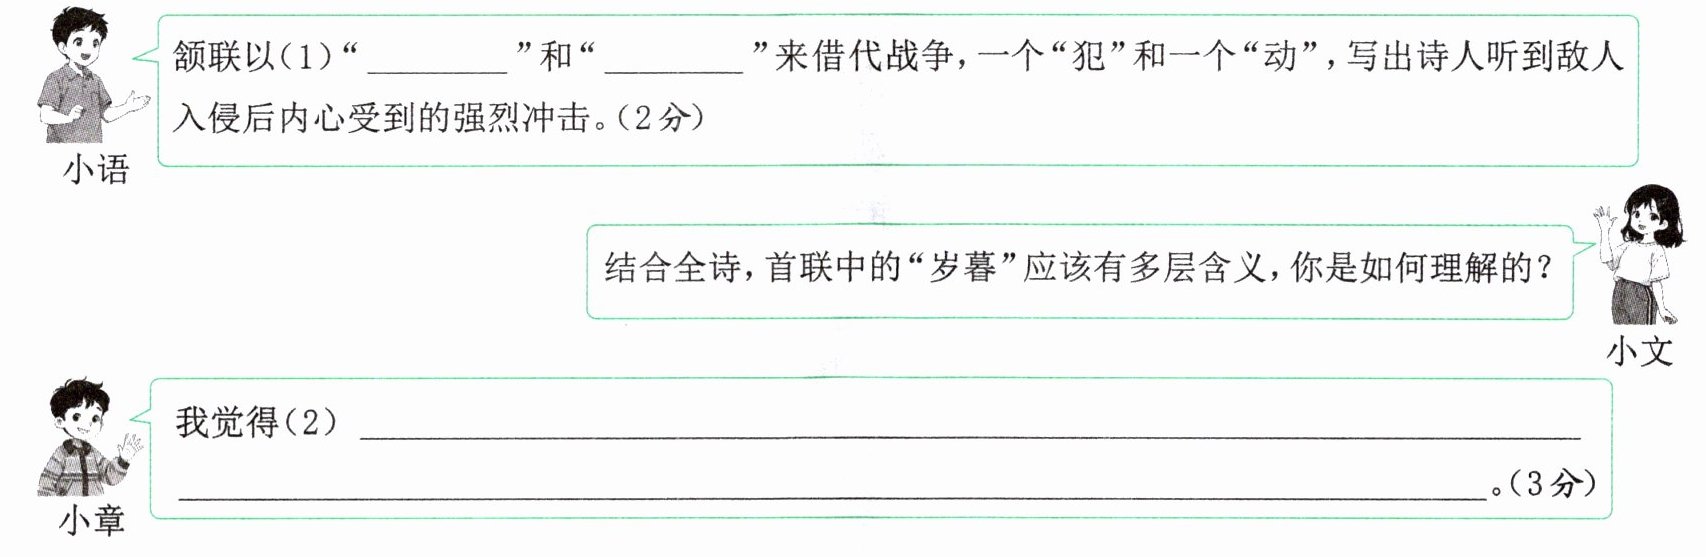 颔联以(1)“________”和“________”来借代战争,一个“犯”和一个“动”,写出诗人听到敌人
入侵后内心受到的强烈冲击。(2分)
小语
结合全诗,首联中的“岁暮”应该有多层含义,你是如何理解的?
小文
我觉得(2)________
________。(3分)
小章